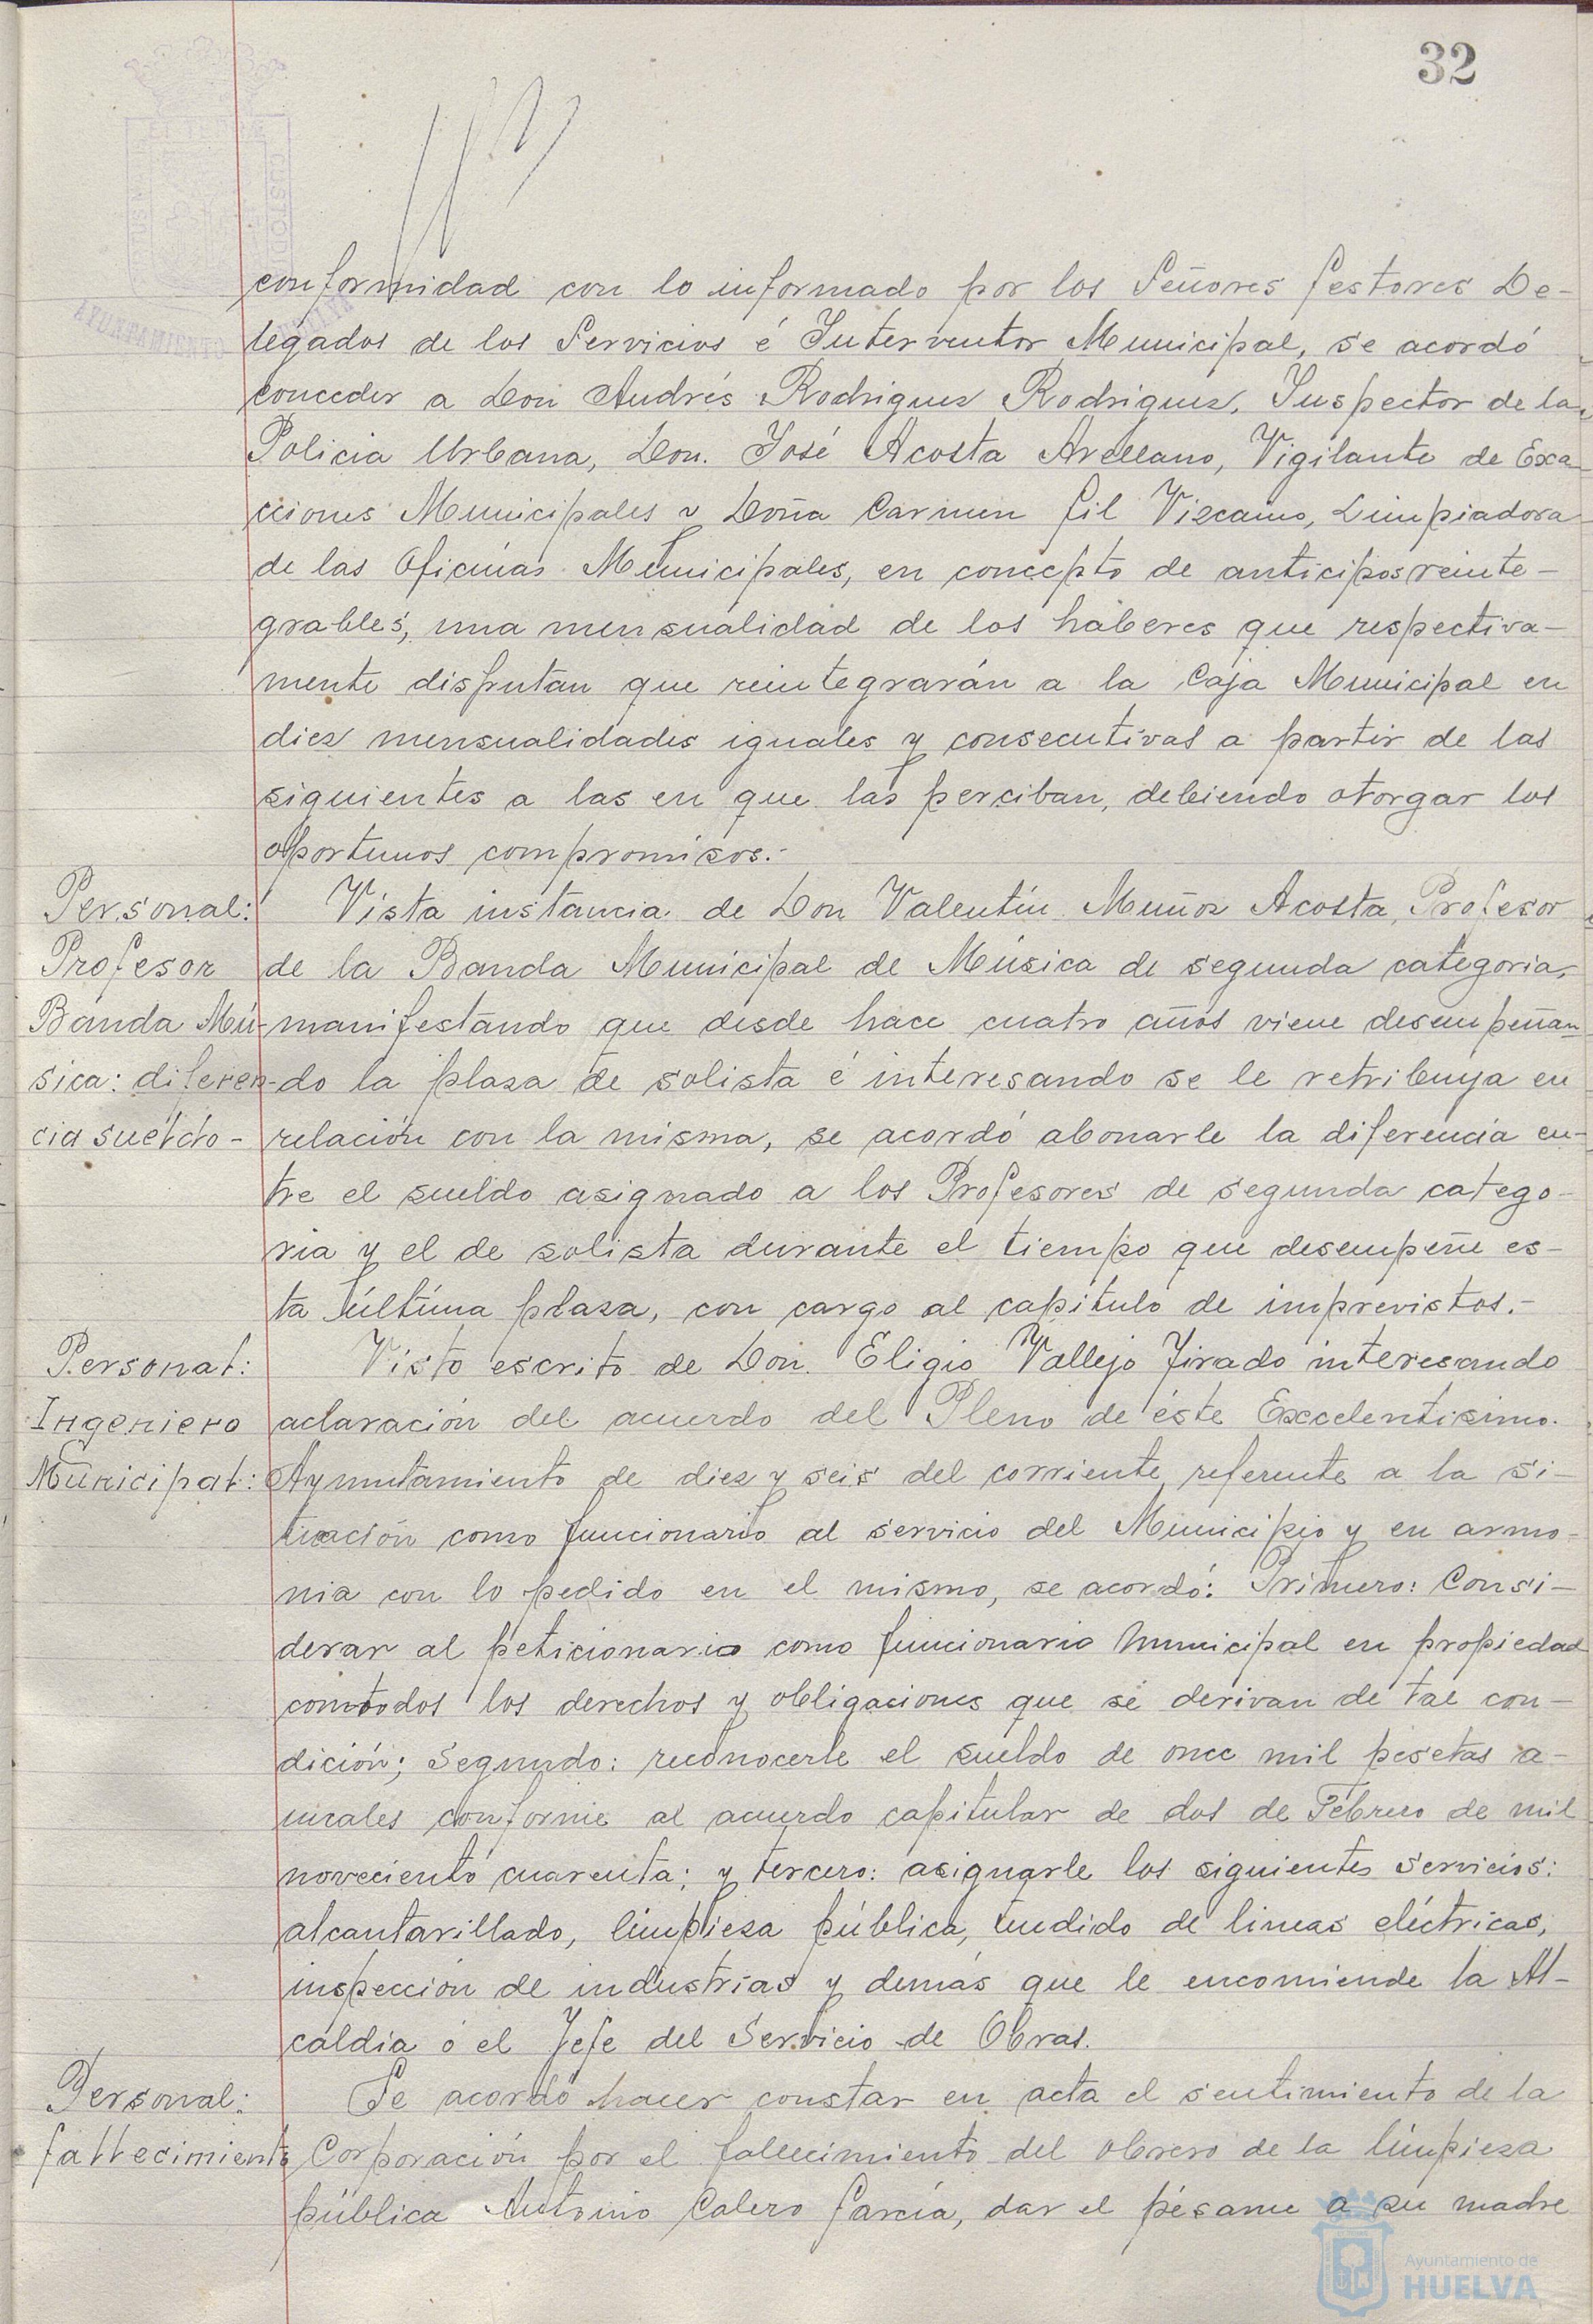 32
conformidad con lo informado por los Señores Gestores De-
legados de los Servicios é Interventor Municipal, se acordó
conceder a Don Andrés Rodriguez Rodriguez, Inspector de la
Policia Urbana, Don José Acosta Arellano, Vigilante de Exa-
cciones Municipales y Doña Carmen Gil Vizcaino, Limpiadora
de las Oficinas Municipales, en concepto de anticipos reinte-
grables, una mensualidad de los haberes que respectiva-
mente disfrutan que reintegrarán a la Caja Municipal en
diez mensualidades iguales y consecutivas a partir de las
siguientes a las en que las perciban, debiendo otorgar los
oportunos compromisos.-
Personal: Vista instancia de Don Valentín Muñoz Acosta, Profesor
Profesor de la Banda Municipal de Música de segunda categoria,
Banda Mú- manifestando que desde hace cuatro años viene desempeñan-
sica: diferen- do la plaza de solista é interesando se le retribuya en
cia sueldo- relación con la misma, se acordó abonarle la diferencia en-
tre el sueldo asignado a los Profesores de segunda catego-
ria y el de solista durante el tiempo que desempeñe es-
ta última plaza, con cargo al capítulo de imprevistos.-
Personal: Visto escrito de Don Eligio Vallejo Jirado interesando
Ingeniero aclaración del acuerdo del Pleno de éste Excelentisimo.
Municipal: Ayuntamiento de diez y seis del corriente, referente a la si-
tuación como funcionario al servicio del Municipio y en armo-
nia con lo pedido en el mismo, se acordó: Primero: Consi-
derar al peticionario como funcionario municipal en propiedad
con todos los derechos y obligaciones que se derivan de tal con-
dición; Segundo: reconocerle el sueldo de once mil pesetas a-
nuales conforme al acuerdo capitular de dos de Febrero de mil
noveciento cuarenta; y tercero: asignarle los siguientes servicios:
alcantarillado, limpieza pública, tendido de lineas eléctricas,
inspección de industrias y demás que le encomiende la Al-
caldia ó el Jefe del Servicio de Obras.
Personal: Se acordó hacer constar en acta el sentimiento de la
fallecimiento Corporación por el fallecimiento del obrero de la limpieza
pública Antonio Calero García, dar el pésame a su madre
Ayuntamiento de
HUELVA